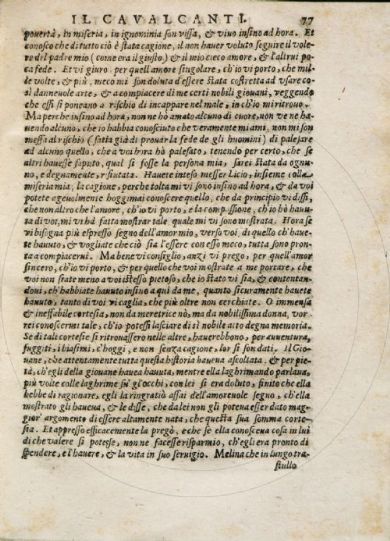 IL CAVALCANTI. 77
pouertà, in miseria, in ignominia son vissa, & viuo insino ad hora. Et
conosco che di tutto ciò è stata cagione, il non hauer voluto seguire il vole-
re di l padre mio (come era il giusto) & il mio cieco amore, & l'altrui po
ca fede. Et vi giuro per quell'amore singolare, ch'io vi porto, che mil-
de volte, & più, meco mi son doluta d'essere stata costretta ad vsare co-
sì danneuole arte, & a compiacere di me certi nobili giouani, veggendo
che essi si poneano a rischio di incappare nel male, in ch'io mi ritrouo.
Ma perche insino ad hora, non ne hò amato alcuno di cuore, non ve ne ha
uendo alcuno, che io habbia conosciuto che veramente mi ami, non mi son
messa al rischio (fatta già di prouar la fede de gli huomini) di palesare
ad alcuno quello, che a voi hora hò palesato, tenendo per certo, che se
altri hauesse saputo, qual si fosse la persona mia, sarei stata da ognu-
no, e degnamente, rifiutata. Hauete inteso messer Licio, insieme colla
miseria mia, la cagione, perche tolta mi vi sono insino ad hora, & da voi
potete ageuolmente hoggimai conoscere quello, che da principio vi dissi,
che non altro che l'amore, ch'io vi porto, e la compassione, ch'io hò hauu-
ta di voi, mi v'hà fatto mostrar tale quale mi vi sono mostrata. Hora se
vi bisogna più espresso segno dell'amor mio, verso voi, di quello ch'haue
te hauuto, & vogliate che ciò sia l'essere con esso meco, tutta sono pron-
ta a compiacerui. Ma bene vi consiglio, anzi vi prego, per quell'amor
sincero, ch'io vi porto, & per quello che voi mostrate a me portare, che
voi non siate meno a voi stesso pietoso, che io stata vi sia, & contentan-
doui, ch'habbiate hauuto insino a quì da me, quanto sicuramente hauete
hauuto, tanto di voi vi caglia, che più oltre non cerchiate. O immensa
& ineffabile cortesia, non da meretrice nò, ma da nobilissima donna, vor
rei conoscermi tale, ch'io potessi lasciare di sì nobile atto degna memoria.
Se di tale cortesie si ritrouassero nelle altre, hauerebbono, per auuentura,
fuggiti, i biasimi, c'hoggi, e non senza cagione, lor si son dati. Il Gio-
uane, che attentamente tutta questa historia haueua ascoltata, & per pie
tà, ch'egli della giouane hauea hauuta, mentre ella lagrimando parlaua,
più volte colle laghrime sù gl'occhi, con lei si era doluto, finito che ella
hebbe di ragionare, egli la ringratiò assai dell'amoreuole segno, ch'ella
mostrato gli haueua, & le disse, che da lei non gli potea esser dato mag-
gior argomento di essere altamente nata, che questa sua somma corte-
sia. Et appresso efficacemente la pregò, che se ella conoscea cosa in lui
di che valere si potesse, non ne facesse risparmio, ch'egli era pronto di
spendere, e l'hauere, & la vita in suo seruigio. Melina che in lungo tra-
stullo